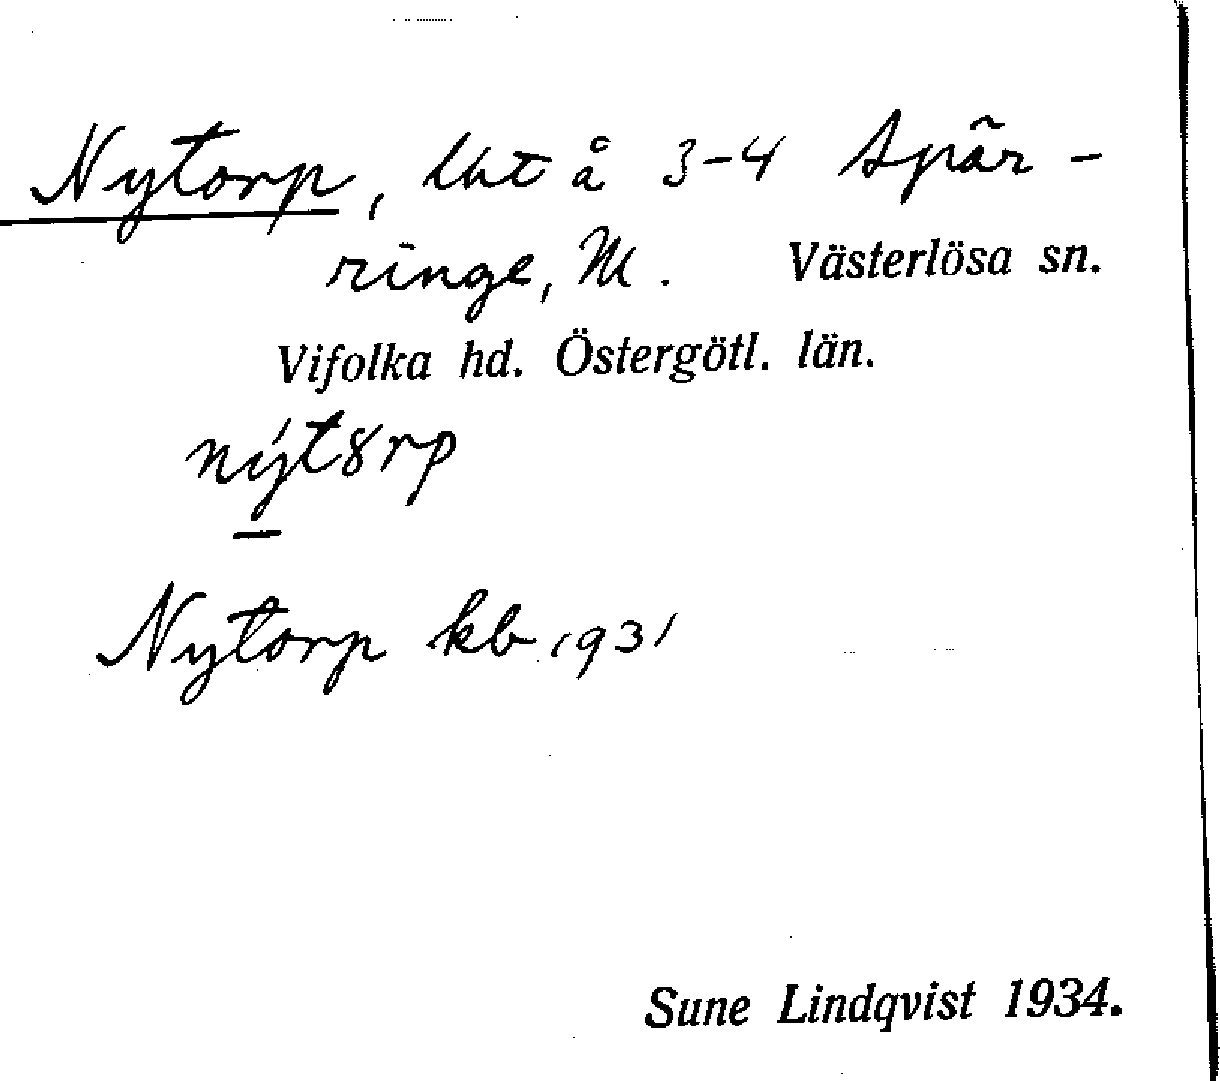 Nytorp, lht å 3-4 Spär-
ringe, M. Västerlösa sn.
Vifolka hd. Östergötl. län.
nýt8rp
Nytorp kb 1931
Sune Lindqvist 1934.